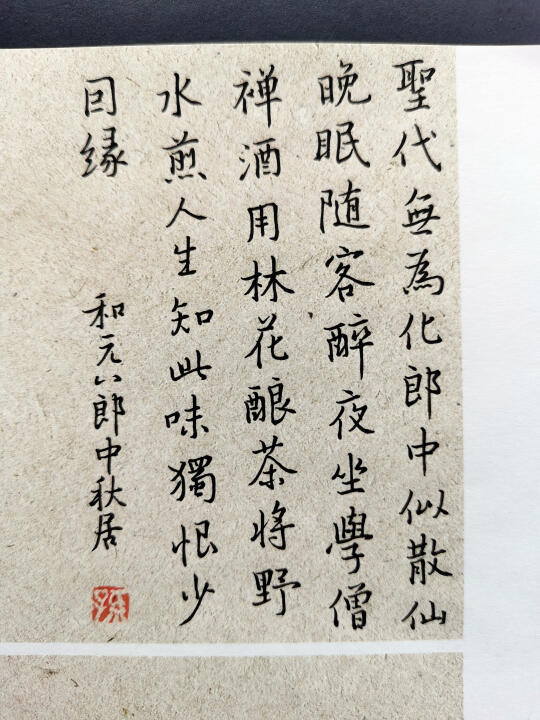 聖代無為化郎中似散仙
晚眠随客醉夜坐學僧
禅酒用林花酿茶将野
水煎人生知此味獨恨少
因缘
和元八郎中秋居